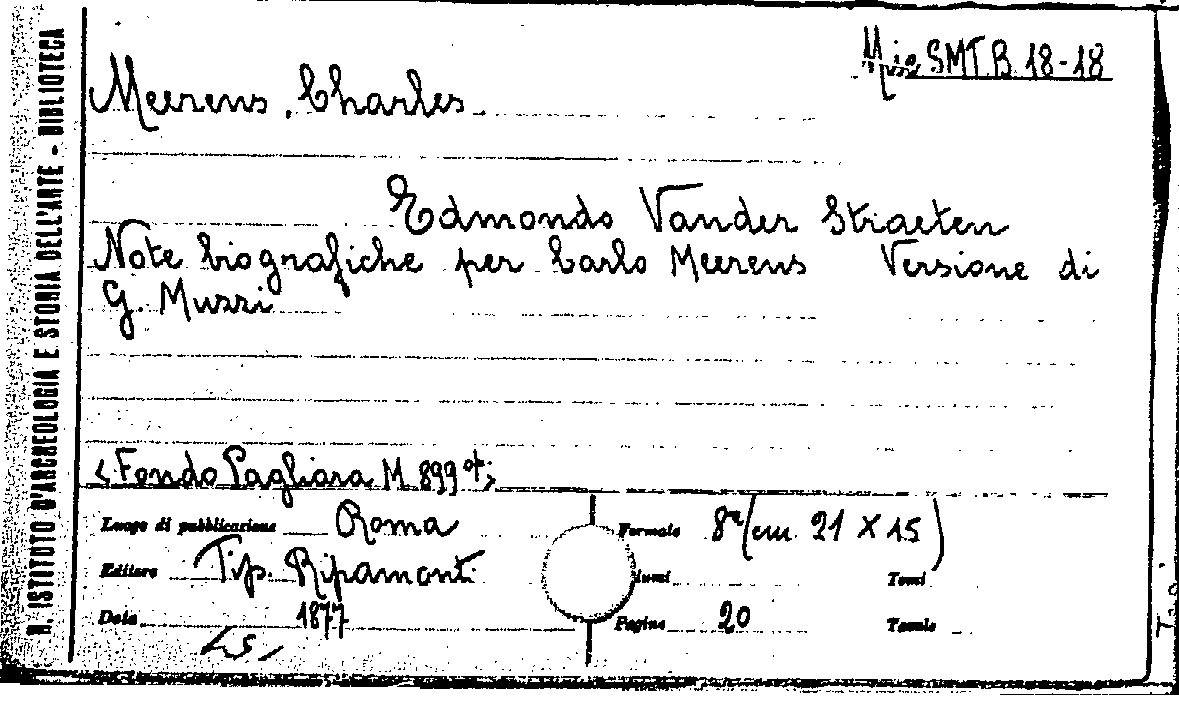 R. ISTITUTO D'ARCHEOLOGIA E STORIA DELL'ARTE - BIBLIOTECA
SMT B 18-18
Meerens, Charles.
Edmondo Vander Straeten
Note biografiche per Carlo Meerens Versione di
G. Muzzi
Fondo Pagliara M 899
Luogo di pubblicazione Roma Formato 8º (cm. 21 X 15)
Editore Tip. Ripamonti lumi Tomi
Data 1877 Pagine 20 Tavole